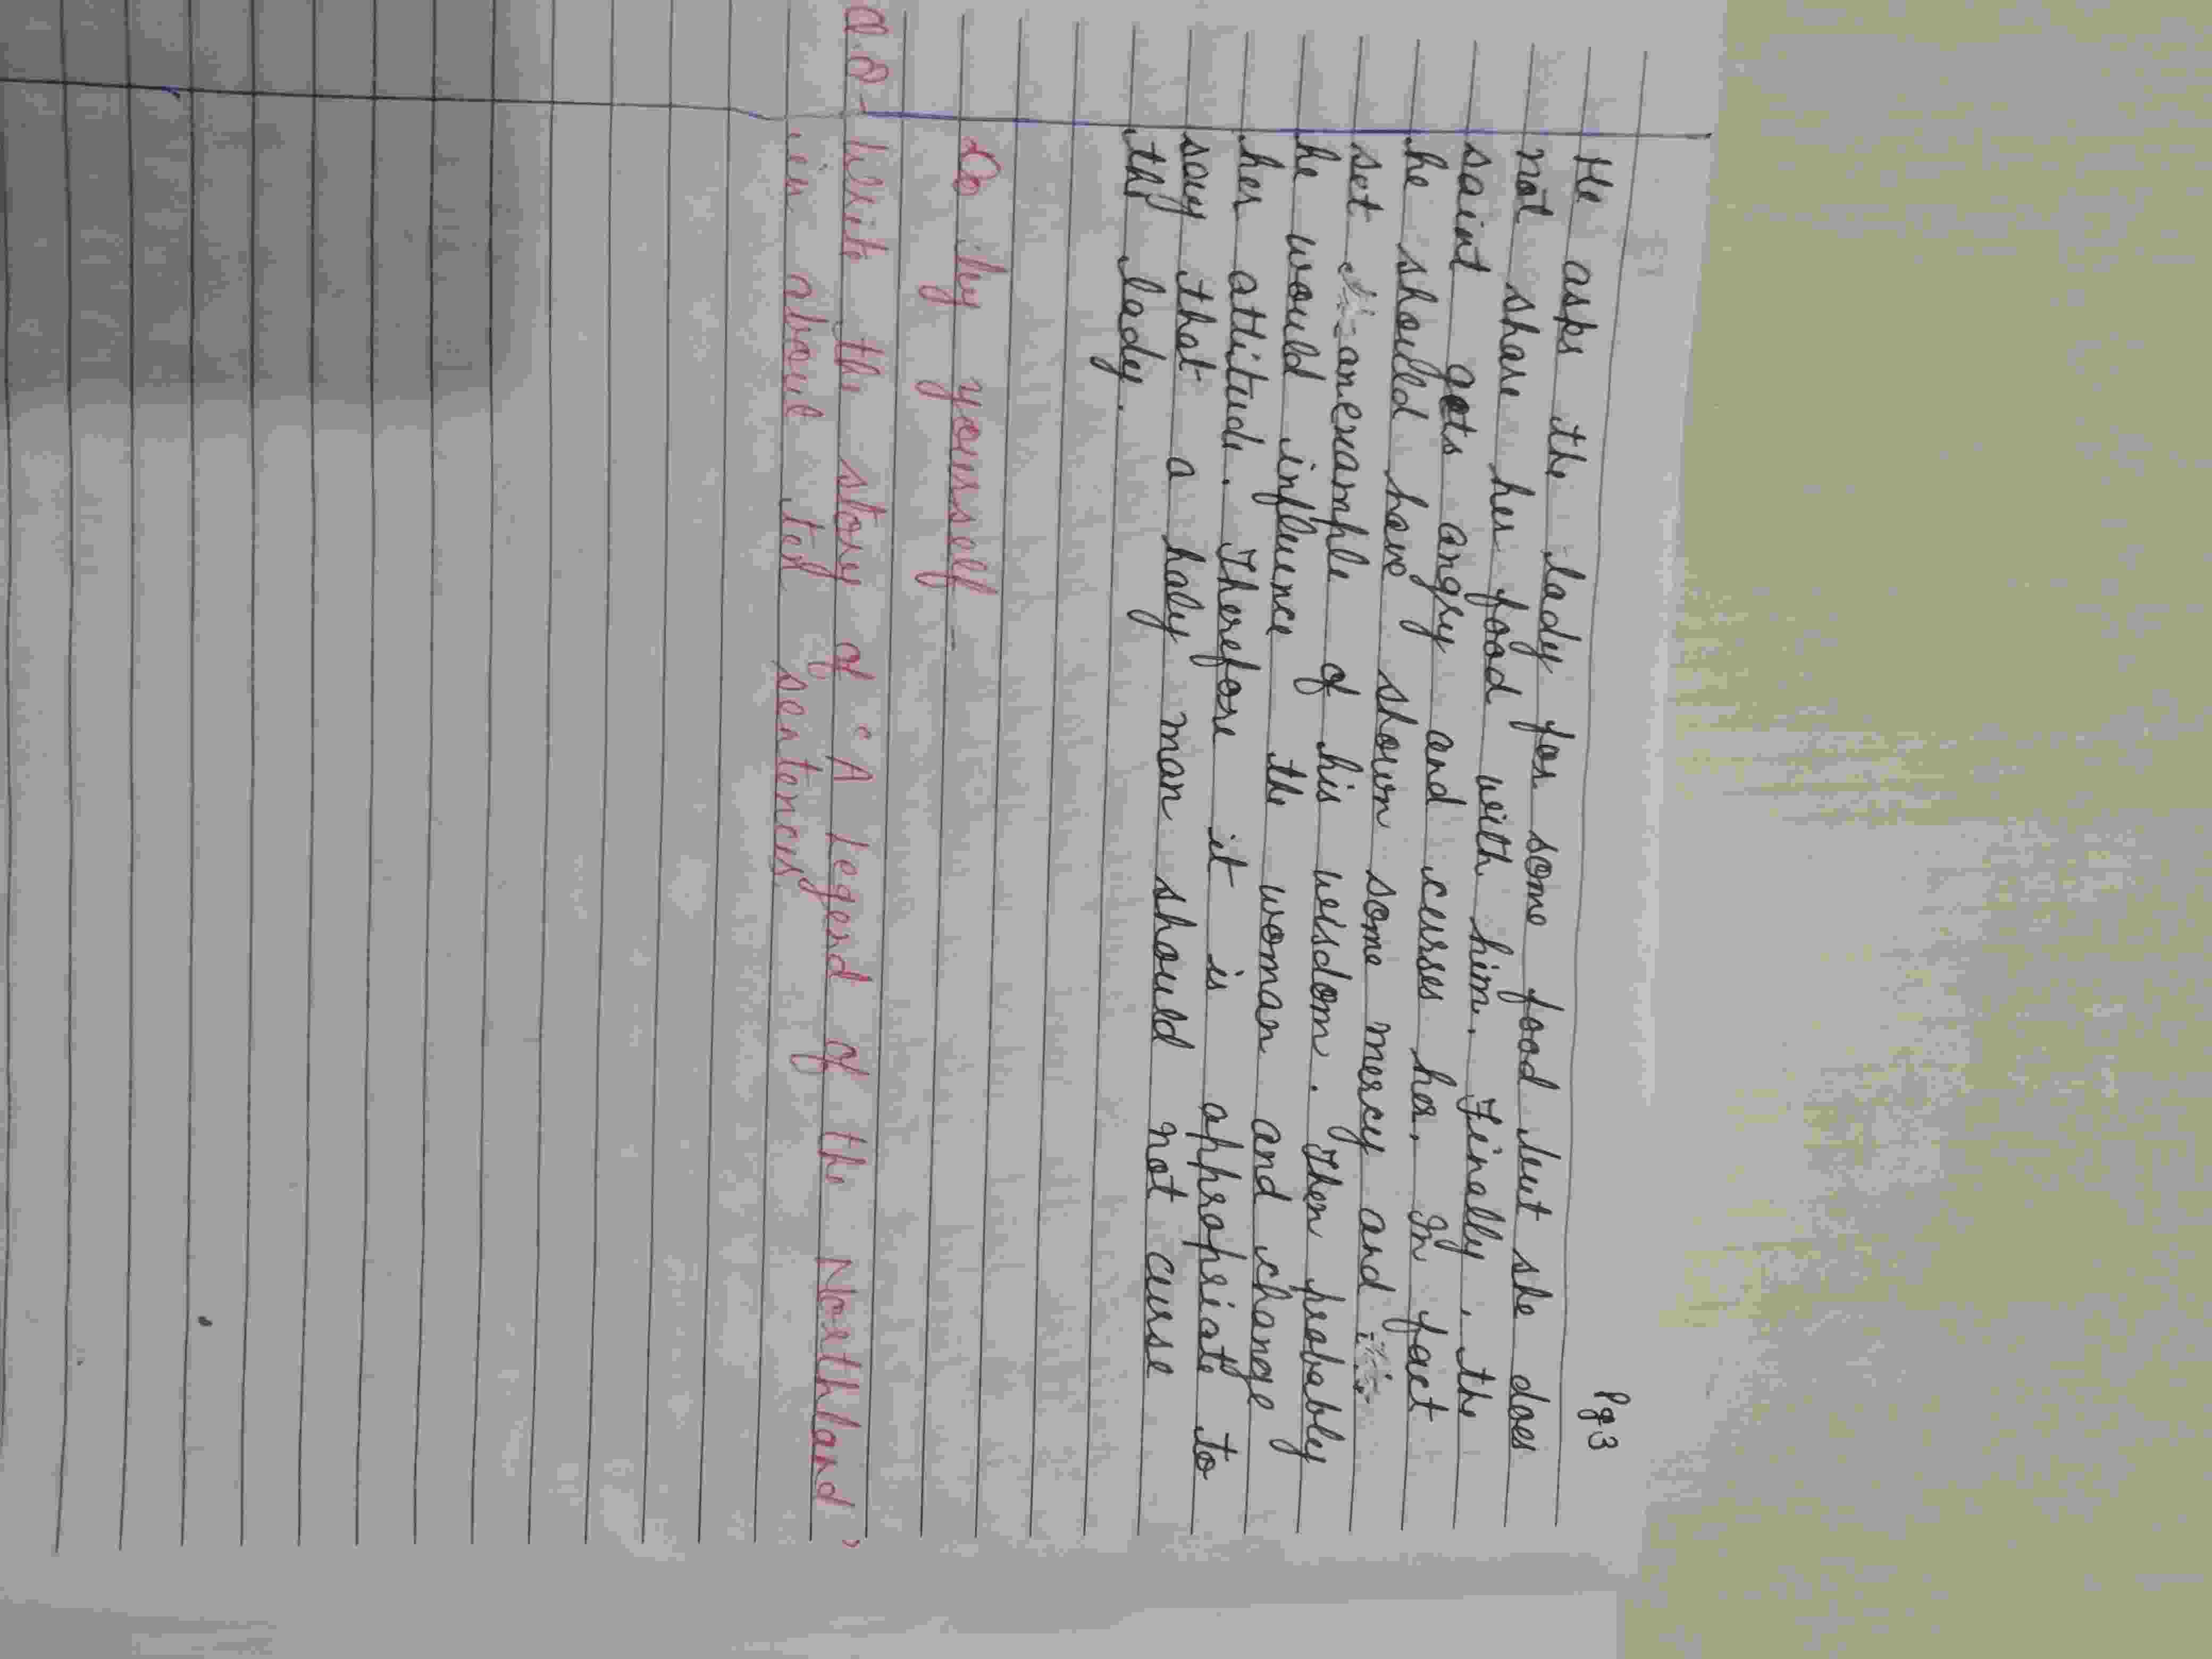 Pg 3
He asks the lady for some food but she does
not share her food with him. Finally, the
saint gets angry and curses her. In fact
he should have shown some mercy and
set an example of his wisdom. Then probably
he would influence the woman and change
her attitude. Therefore it is appropriate to
say that a holy man should not curse
the lady.
Do by yourself -
Write the story of "A Legend of the Northland"
in about ten sentences.